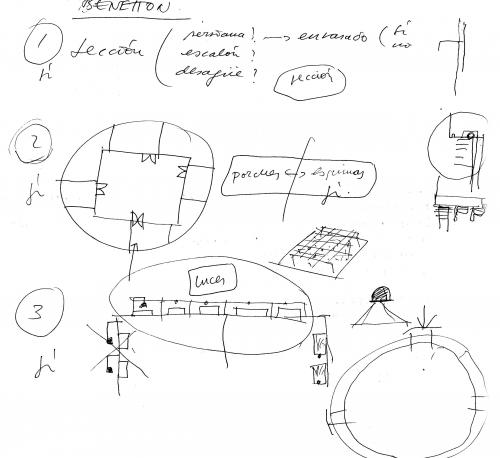 BENETTON
1 sección ( persiana? → enrasado ( sí
escalón? no
desagüe?
sí sección
2
porches ↔ esquinas
sí sí
luces
3
sí